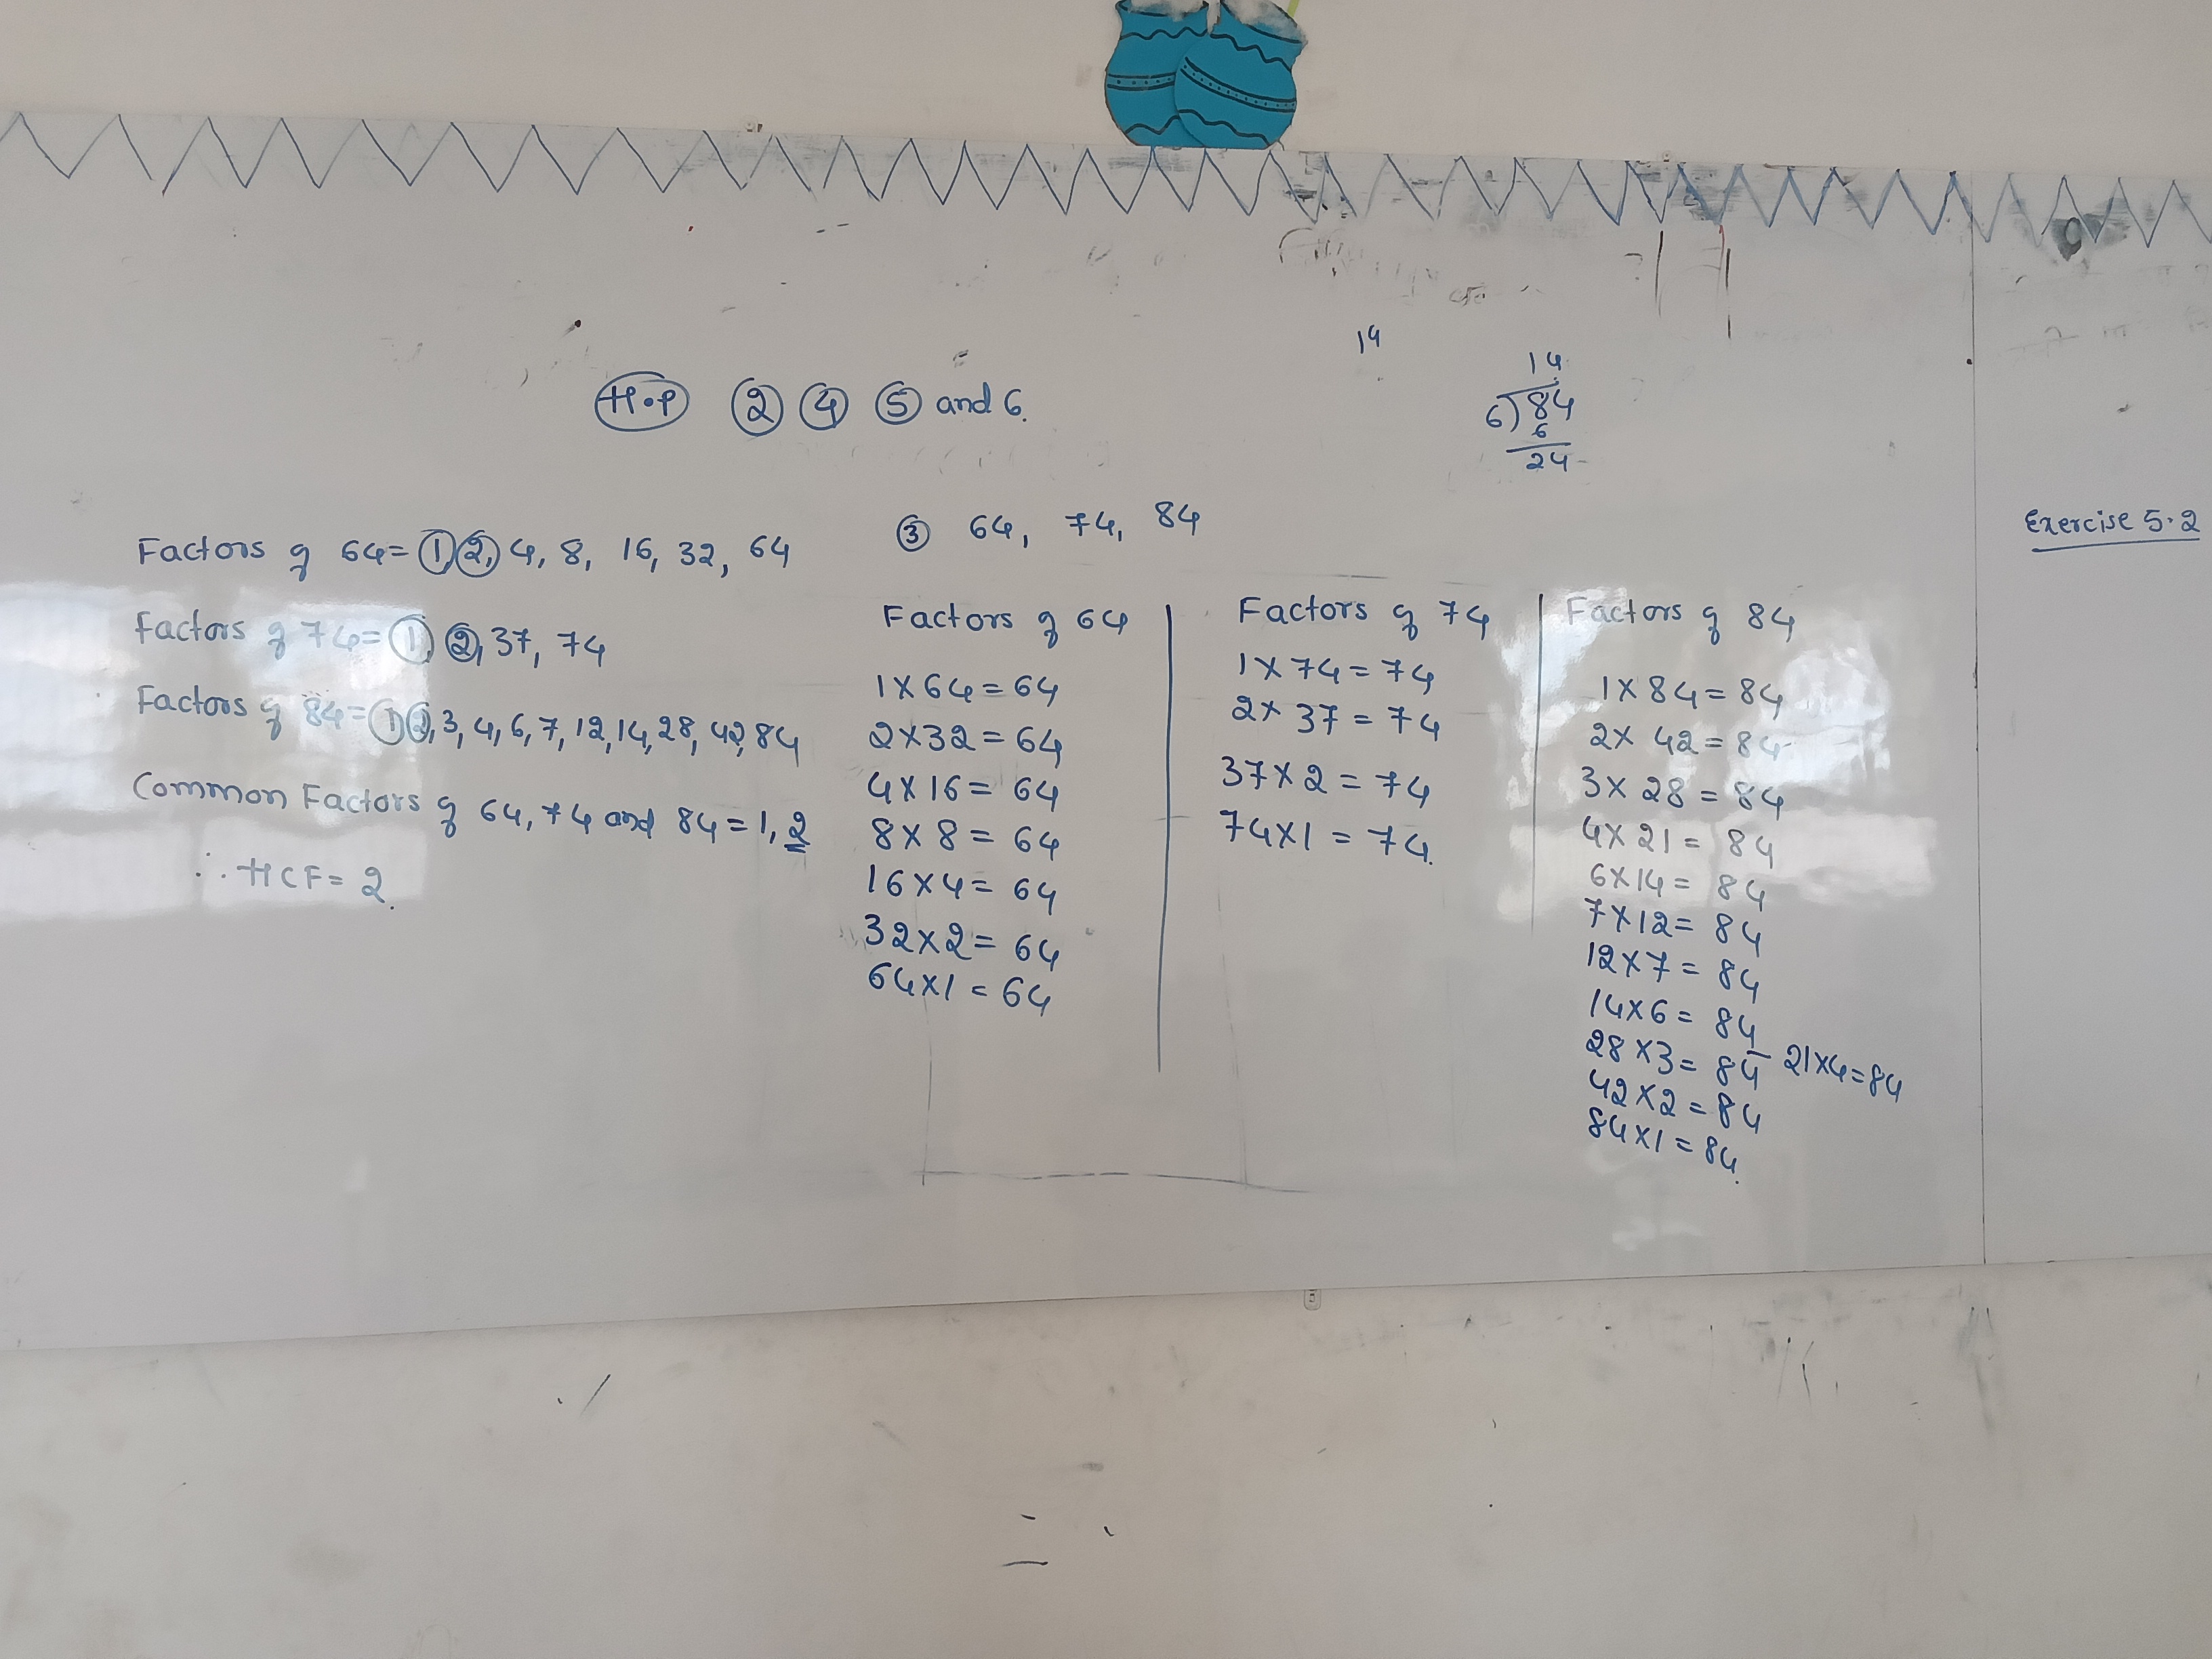 H.P 2 4 5 and 6.
14
14
6)84
6
24
Exercise 5.2
③ 64, 74, 84
Factors of 64 = 1, 2, 4, 8, 16, 32, 64
Factors of 74 = 1, 2, 37, 74
Factors of 84 = 1, 2, 3, 4, 6, 7, 12, 14, 28, 42, 84
Common Factors of 64, 74 and 84 = 1, 2
∴ HCF = 2.
Factors of 64
1 × 64 = 64
2 × 32 = 64
4 × 16 = 64
8 × 8 = 64
16 × 4 = 64
32 × 2 = 64
64 × 1 = 64
Factors of 74
1 × 74 = 74
2 × 37 = 74
37 × 2 = 74
74 × 1 = 74.
Factors of 84
1 × 84 = 84
2 × 42 = 84
3 × 28 = 84
4 × 21 = 84
6 × 14 = 84
7 × 12 = 84
12 × 7 = 84
14 × 6 = 84
21 × 4 = 84
28 × 3 = 84
42 × 2 = 84
84 × 1 = 84.